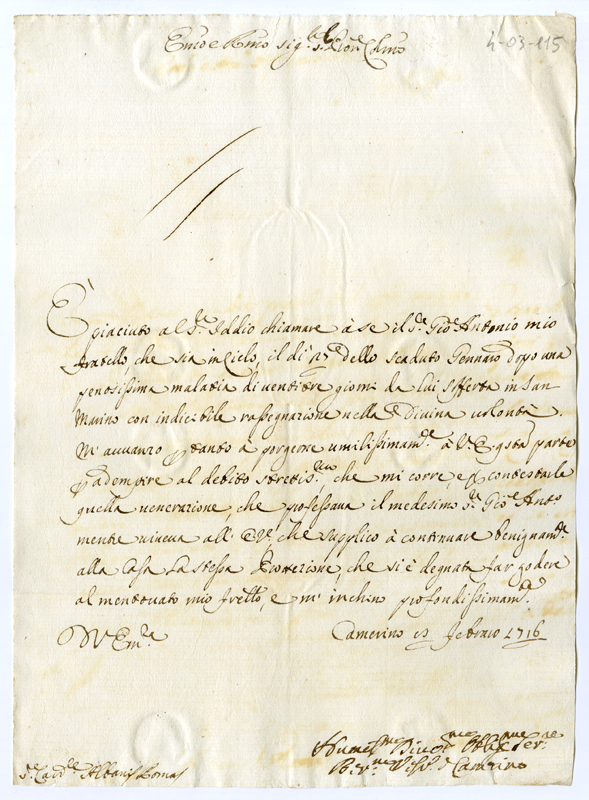 Emo e Rmo sig.r
4-03-115
È piaciuto al S.re Iddio chiamare à se il S.r Gio: Antonio mio
fratello, che sia in Cielo, il dì dello scaduto Gennaro dopo una
penosissima malatia di ventitre giorni da lui sofferta in San
Marino con indicibile rassegnazione nella Divina volontà.
M'avvanzo ptanto à porgerne umilissimam.te à V.E. qsta parte
p adempire al debito strettis.mo che mi corre e p contestarle
quella venerazione, che professava il medesimo S.r Gio: Anto
mentre viveva all' E.V. che supplico à continuare benignam.te
alla Casa la stessa Protezione, che si è degnata far godere
al mentovato mio frello, e m'inchino profondissimam.te
D V Em.a
Camerino Febraro 1716
Humiliss.mo Divot.mo Oblig.mo Ser.re
B. Vesc.o di Camerino
S.r Card.le Albani Roma